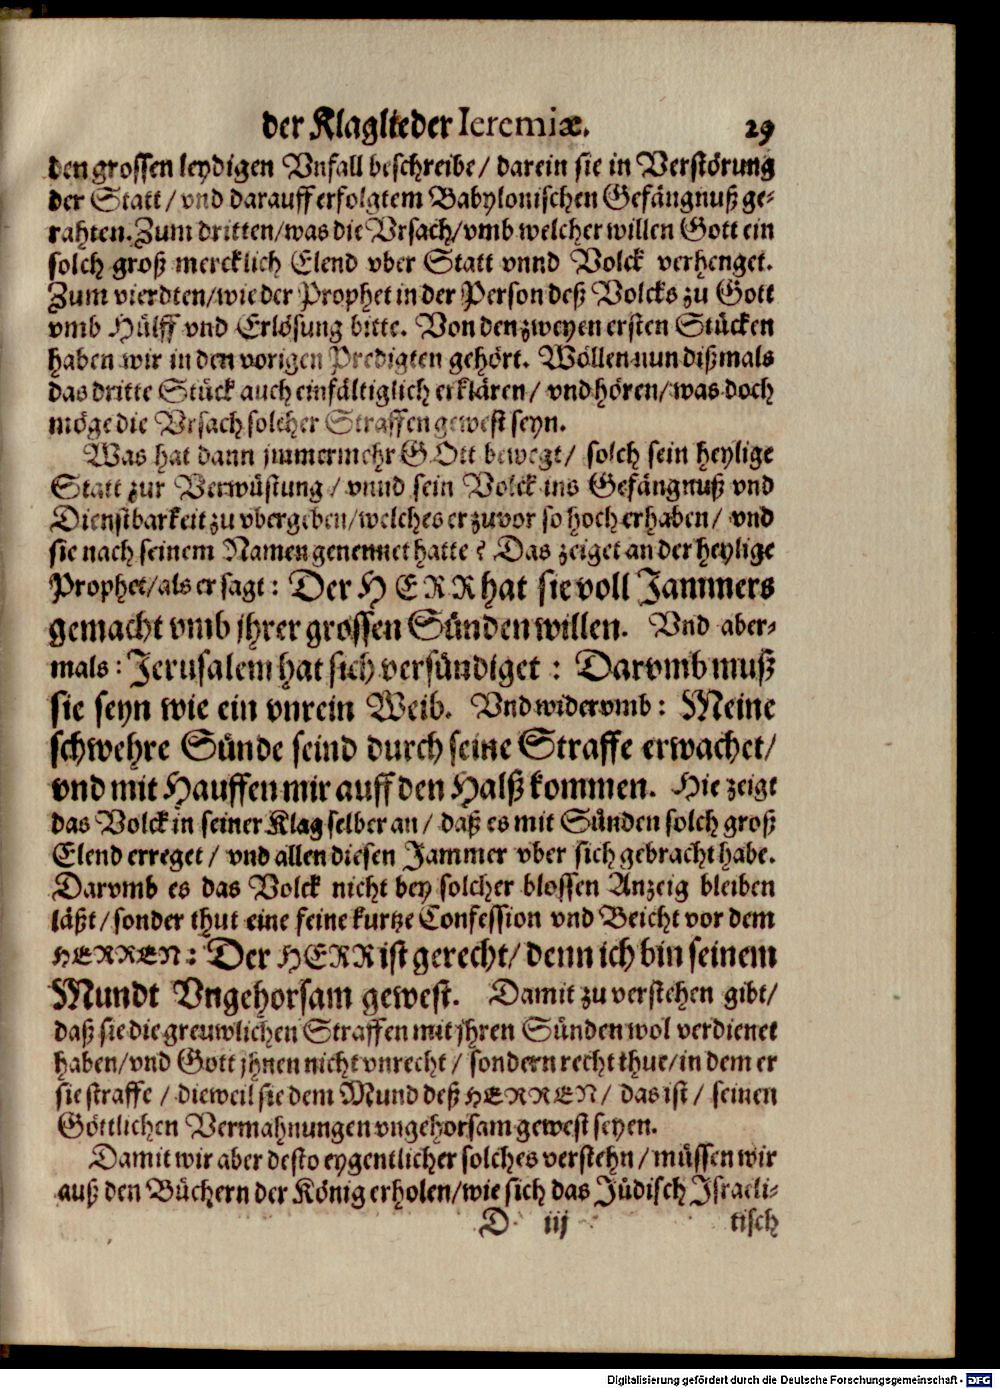 der Klaglieder Ieremiæ. 29
den grossen leydigen Vnfall beschreibe/ darein sie in Verstörung
der Statt/ vnd darauff erfolgtem Babylonischen Gefängnuß ge-
rahten. Zum dritten/was die Vrsach/vmb welcher willen Gott ein
solch groß mercklich Elend vber Statt vnnd Volck verhenget.
Zum vierdten/wie der Prophet in der Person deß Volcks zu Gott
vmb Hülff vnd Erlösung bitte. Von den zweyen ersten Stücken
haben wir in den vorigen Predigten gehört. Wöllen nun dißmals
das dritte Stück auch einfältiglich erklären/ vnd hören/was doch
möge die Vrsach solcher Straffen gewest seyn.
Was hat dann jmmermehr GOtt bewegt/ solch sein heylige
Statt zur Verwüstung/ vnnd sein Volck ins Gefängnuß vnd
Dienstbarkeit zu vbergeben/welches er zuvor so hoch erhaben/ vnd
sie nach seinem Namen genennet hatte? Das zeiget an der heylige
Prophet/als er sagt: Der HERR hat sie voll Jammers
gemacht vmb jhrer grossen Sünden willen. Vnd aber-
mals: Jerusalem hat sich versündiget: Darvmb muß
sie seyn wie ein vnrein Weib. Vnd widervmb: Meine
schwehre Sünde seind durch seine Straffe erwachet/
vnd mit Hauffen mir auff den Halß kommen. Hie zeigt
das Volck in seiner Klag selber an/ daß es mit Sünden solch groß
Elend erreget/ vnd allen diesen Jammer vber sich gebracht habe.
Darvmb es das Volck nicht bey solcher blossen Anzeig bleiben
läßt/sonder thut eine feine kurtze Confession vnd Beicht vor dem
HERREN: Der HERR ist gerecht/denn ich bin seinem
Mundt Vngehorsam gewest. Damit zu verstehen gibt/
daß sie die greuwlichen Straffen mit jhren Sünden wol verdienet
haben/vnd Gott jhnen nicht vnrecht/ sondern recht thue/in dem er
sie straffe/ dieweil sie dem Mund deß HERREN/ das ist/ seinen
Göttlichen Vermahnungen vngehorsam gewest seyen.
Damit wir aber desto eygentlicher solches verstehn/müssen wir
auß den Büchern der König erholen/wie sich das Jüdisch Israeli-
D iij tisch
Digitalisierung gefördert durch die Deutsche Forschungsgemeinschaft - DFG